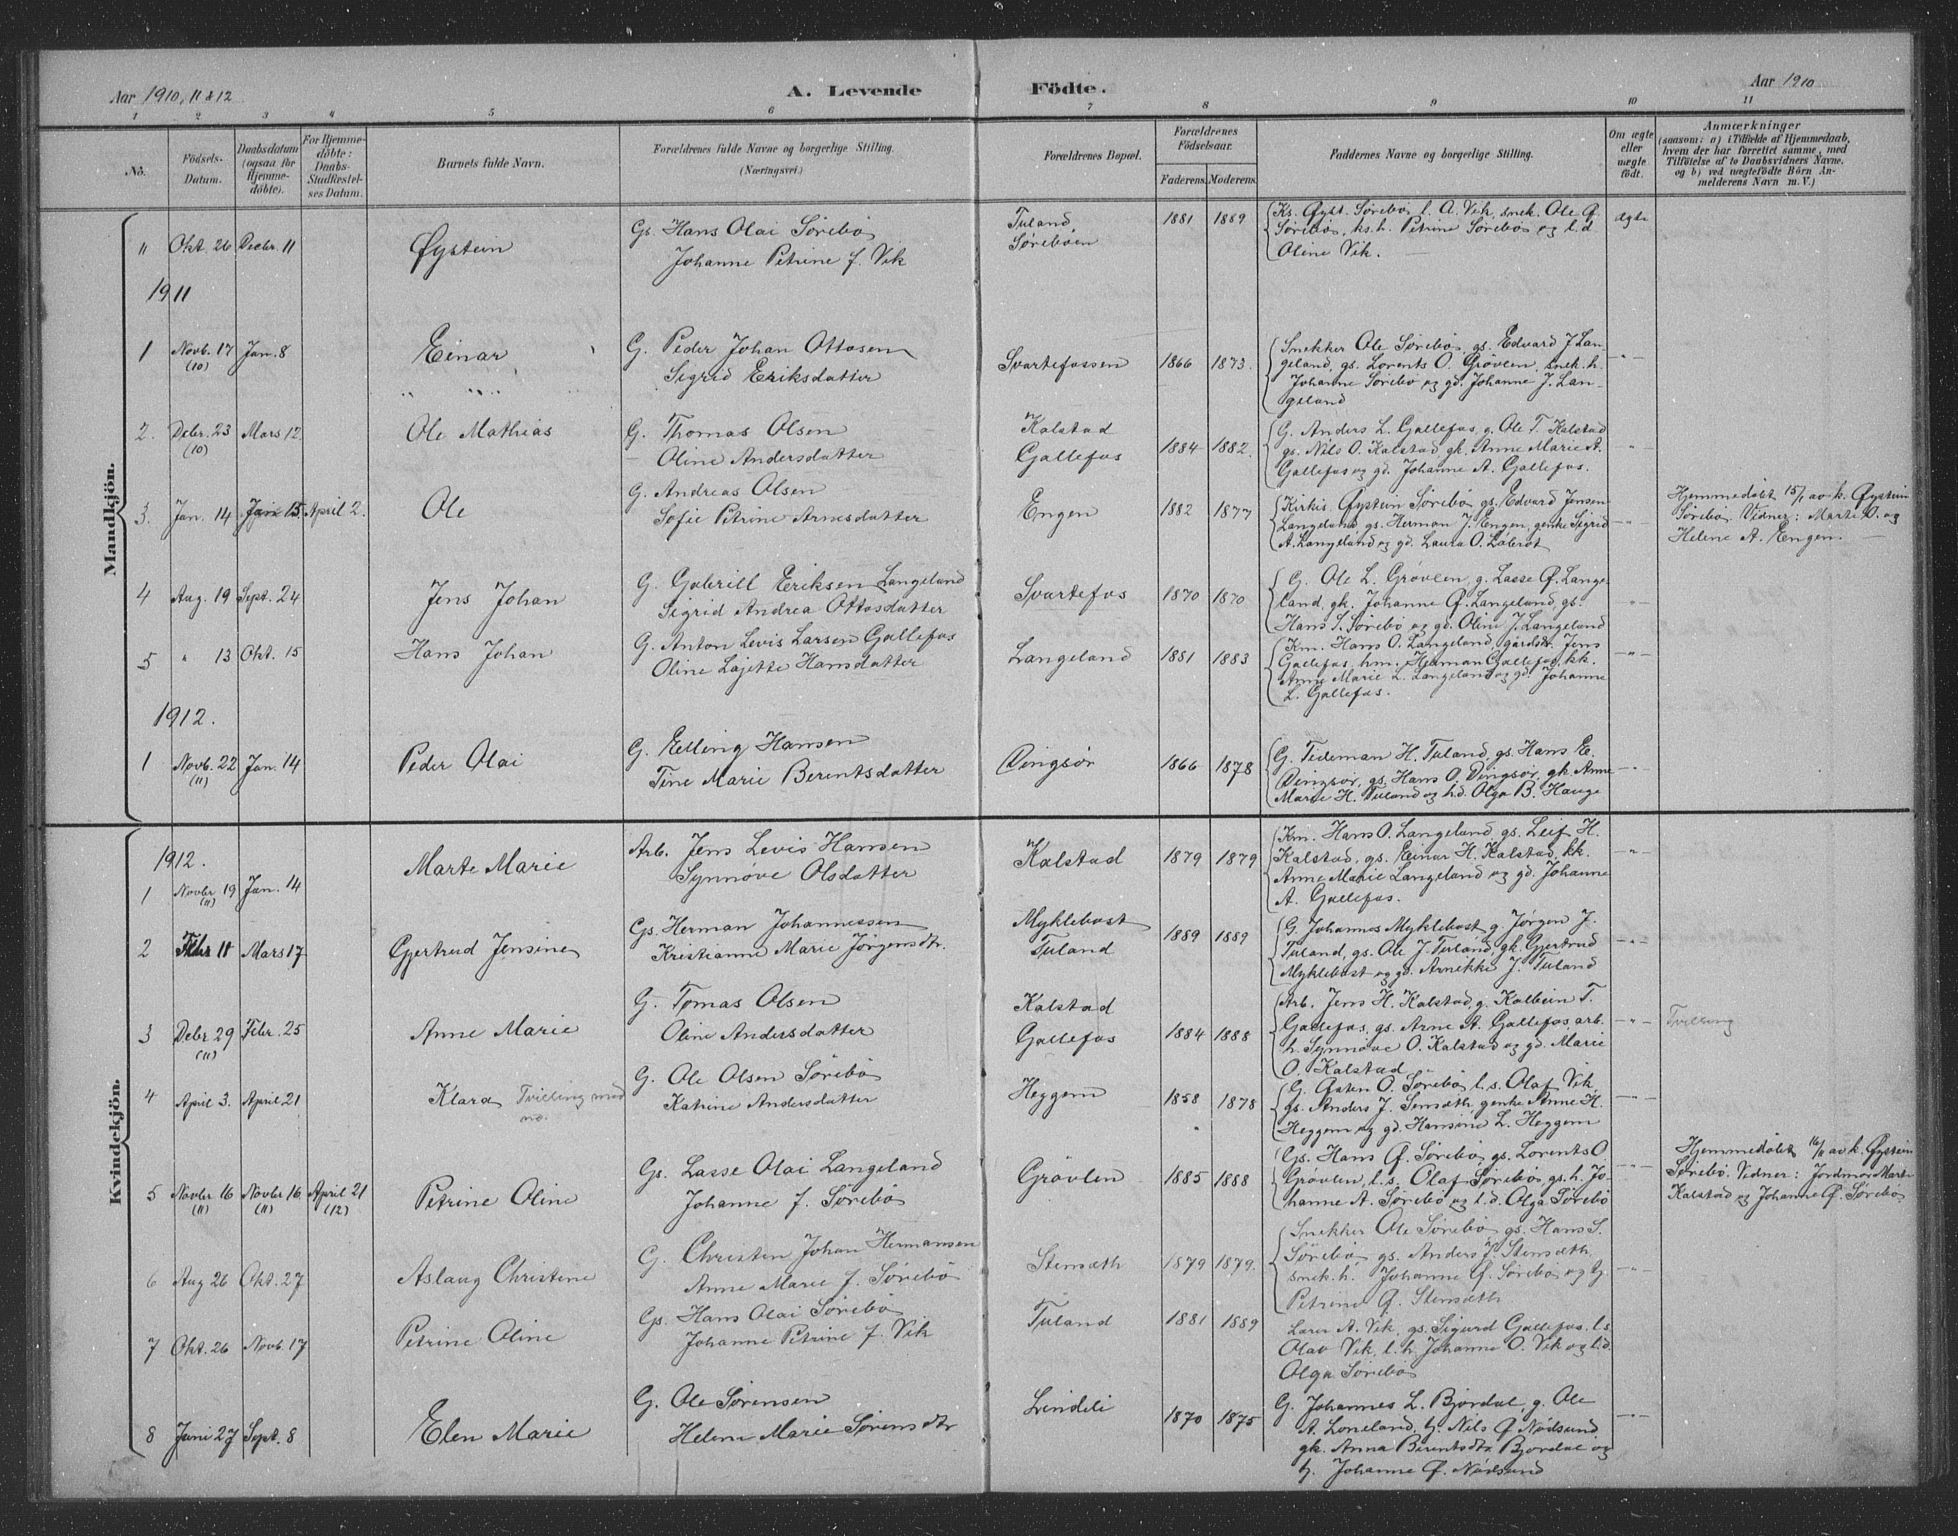 Aar 1910, 11 & 12 A. Levende Födte. Aar 1910
1 2 3 4 5 6 7 8 9 10 11
No. Födsels-Datum. Daabsdatum (ogsaa for Hjemmedöbte). For Hjemmedöbte: Daabs-Stadfæstelses Datum. Barnets fulde Navn. Forældrenes fulde Navne og borgerlige Stilling. (Næringsvei.) Forældrenes Bopæl. Forældrenes Födselsaar. Faderens. Moderens. Faddernes Navne og borgerlige Stilling. Om ægte eller uægte født. Anmærkninger (saasom: a) i Tilfælde af Hjemmedaab, hvem der har forrettet samme, med Tilföielse af to Daabsvidners Navne, og b) ved uægtefödte Börn Anmelderens Navn m. V.)
Mandkjön.
11 Okt. 26 Decbr. 11 Øystein Gs. Hans Olai Sørebø Tuland, 1881 1889 Ks. Øyst. Sørebø, l. A. Vik, snek. Ole Ø. ægte
Johanne Petrine f. Vik Sørebøen Sørebø, ks. h. Petrine Sørebø og l. d.
Oline Vik.
1911
1 Novb. 17 (10) Jan. 8 Einar G. Peder Johan Ottosen Svartefossen 1866 1873. Snekker Ole Sørebø, gs. Edvard J. Lan- -"-
Sigrid Eriksdatter geland, gs. Lorents O. Grøvlen, snek. h.
Johanne Sørebø og gd. Johanne J. Lan-
geland
2. Debr. 23 (10) Mars 12 Ole Mathias G. Thomas Olsen Kalstad 1884 1882. G. Anders L. Gallefos, g. Ole T. Kalstad "
Oline Andersdatter Gallefos gs. Nils O. Kalstad, gk. Anne Marie A.
Gallefos og gd. Johanne A. Gallefos.
3. Jan. 14 Jan 15 April 2. Ole G. Andreas Olsen Engen 1882 1877 Kirkis. Øystein Sørebø, gs. Edvard Jensen -"- Hjemmedøbt 15/1 av k. Øystein
Sofie Petrine Arnesdatter Langeland, gs. Herman J. Engen, genke Sigrid Sørebø. Vidner: Marte O. og
A. Langeland og gd. Laura O. Løbrot Helene A. Engen.
4 Aug. 19 Sept. 24 Jens Johan G. Gabriell Eriksen Langeland Svartefos 1870 1870 G. Ole L. Grøvlen, g. Lasse Ø. Lange- -"-
Sigrid Andrea Ottosdatter land, gk. Johanne Ø. Langeland, gs.
Hans S. Sørebø og gd. Oline J. Langeland
5 " 13 Okt. 15 Hans Johan G. Anton Levis Larsen Gallefos Langeland 1881 1883 Km. Hans O. Langeland, gårdstr. Jens -"-
Oline Lajette Hansdatter Gallefos, hm. Herman Gallefos, kk.
Anne Marie L. Langeland og gd. Johanne
L. Gallefos.
1912.
1 Novb. 22 (11) Jan. 14 Peder Olai G. Elling Hansen Dingsør 1866 1878 G. Tideman H. Tuland, gs. Hans E. -"-
Tine Marie Berentsdatter Dingsør, gs. Hans O. Dingsør, gk. Anne
Marie H. Tuland og hd. Olga B. Hauge
Kvindekjön.
1912.
1 Novbr 19 (11) Jan. 14 Marte Marie Arb. Jens Levis Hansen Kalstad 1879 1879 Km. Hans O. Langeland, gs. Leif H. -"-
Synnøve Olsdatter Kalstad, gs. Einar H. Kalstad, kk.
Anne Marie Langeland og gd. Johanne
A. Gallefos.
2 Febr 11 Mars 17 Gjertrud Jensine Gs. Herman Johannessen Myklebost 1889 1889 G. Johannes Myklebost, g. Jørgen J. -"-
Kristianne Marie Jørgensdtr. Tuland Tuland, gs. Ole J. Tuland, gk. Gjertrud
Myklebost og gd. Arnekke J. Tuland
3 Debr 29 (11) Febr. 25 Anne Marie G. Tomas Olsen Kalstad 1884 1888 Arb. Jens H. Kalstad, g. Kolbein T. -"- Tvilling
Oline Andersdatter Gallefos Gallefos, gs. Arne A. Gallefos, arb.
h. Synnøve O. Kalstad og gd. Marie
O. Kalstad
4 April 3. April 21 Klara Tvilling med no. G. Ole Olsen Sørebø Heggem 1858 1878 G. Østen O. Sørebø, l. s. Olaf Vik, -"-
Katrine Andersdatter gs. Anders J. Sensæth, genke Anne H.
Heggem og gd. Hansine L. Heggem
5 Novbr 16 (11) Novbr 16 (11) April 21 (12) Petrine Oline Gs. Lasse Olai Langeland Grøvlen 1885 1888 Gs. Hans Ø. Sørebø, gs. Lorents O. -"- Hjemmedøbt 16/11 av k. Øystein
Johanne f. Sørebø Grøvlen, l. s. Olaf Sørebø, gs. h. Jo- Sørebø. Vidner: Jordmor Marte
hanne A. Sørebø og l. d. Olga Sørebø Kalstad og Johanne Ø. Sørebø
6 Aug 26 Okt. 27 Aslaug Christine G. Christen Johan Hermansen Stensæth 1879 1879. Snekker Ole Sørebø, gs. Hans S. -"-
Anne Marie f. Sørebø Sørebø, gs. Anders J. Stensæth,
snek. h. Johanne Ø. Sørebø og
Petrine Ø. Stensæth
7 Okt. 26 Novb. 17 Petrine Oline Gs. Hans Olai Sørebø Tuland 1881 1889 Lærer A. Vik, gs. Sigurd Gallefos, l. s
Johanne Petrine f. Vik Olav Vik, l. h. Johanne O. Vik og l. d.
Olga Sørebø
8 Juni 27 Sept. 8 Elen Marie G. Ole Sørensen Lindeli 1870 1875 G. Johannes L. Bjordal, g. Ole -"-
Helene Marie Sørensdtr A. Loneland, Nils Ø. Nødsund
gk. Anna Berentsdtr. Bjordal og
Johanne Ø. Nødsund